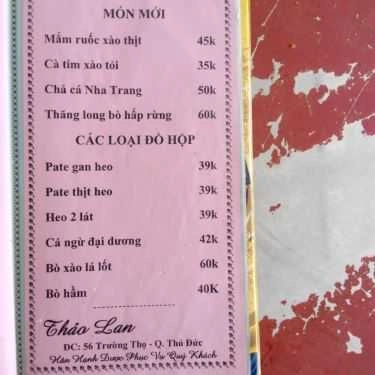 MÓN MỚI
Mắm ruốc xào thịt 45k
Cà tím xào tỏi 35k
Chả cá Nha Trang 50k
Thăng long bò hấp rừng 60k
CÁC LOẠI ĐỒ HỘP
Pate gan heo 39k
Pate thịt heo 39k
Heo 2 lát 39k
Cá ngừ đại dương 42k
Bò xào lá lốt 60k
Bò hầm 40K
Thảo Lan
ĐC: 56 Trường Thọ - Q. Thủ Đức
Hân Hạnh Được Phục Vụ Quý Khách